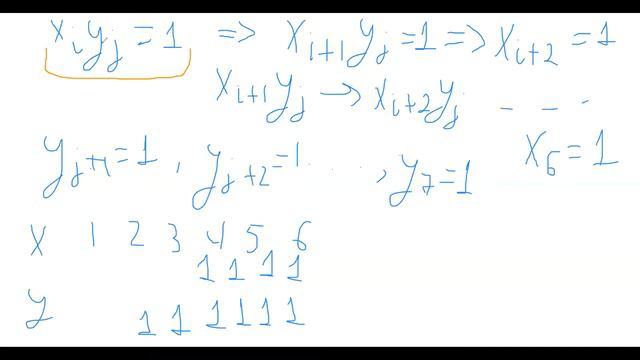 x_i y_j = 1 => x_{i+1} y_j = 1 => x_{i+2} = 1
x_{i+1} y_j → x_{i+2} y_j - - -
y_{j+1} = 1 , y_{j+2} = 1 . . . , y_7 = 1 x_6 = 1
X 1 2 3 4 5 6
1 1 1 1
y 1 1 1 1 1 1